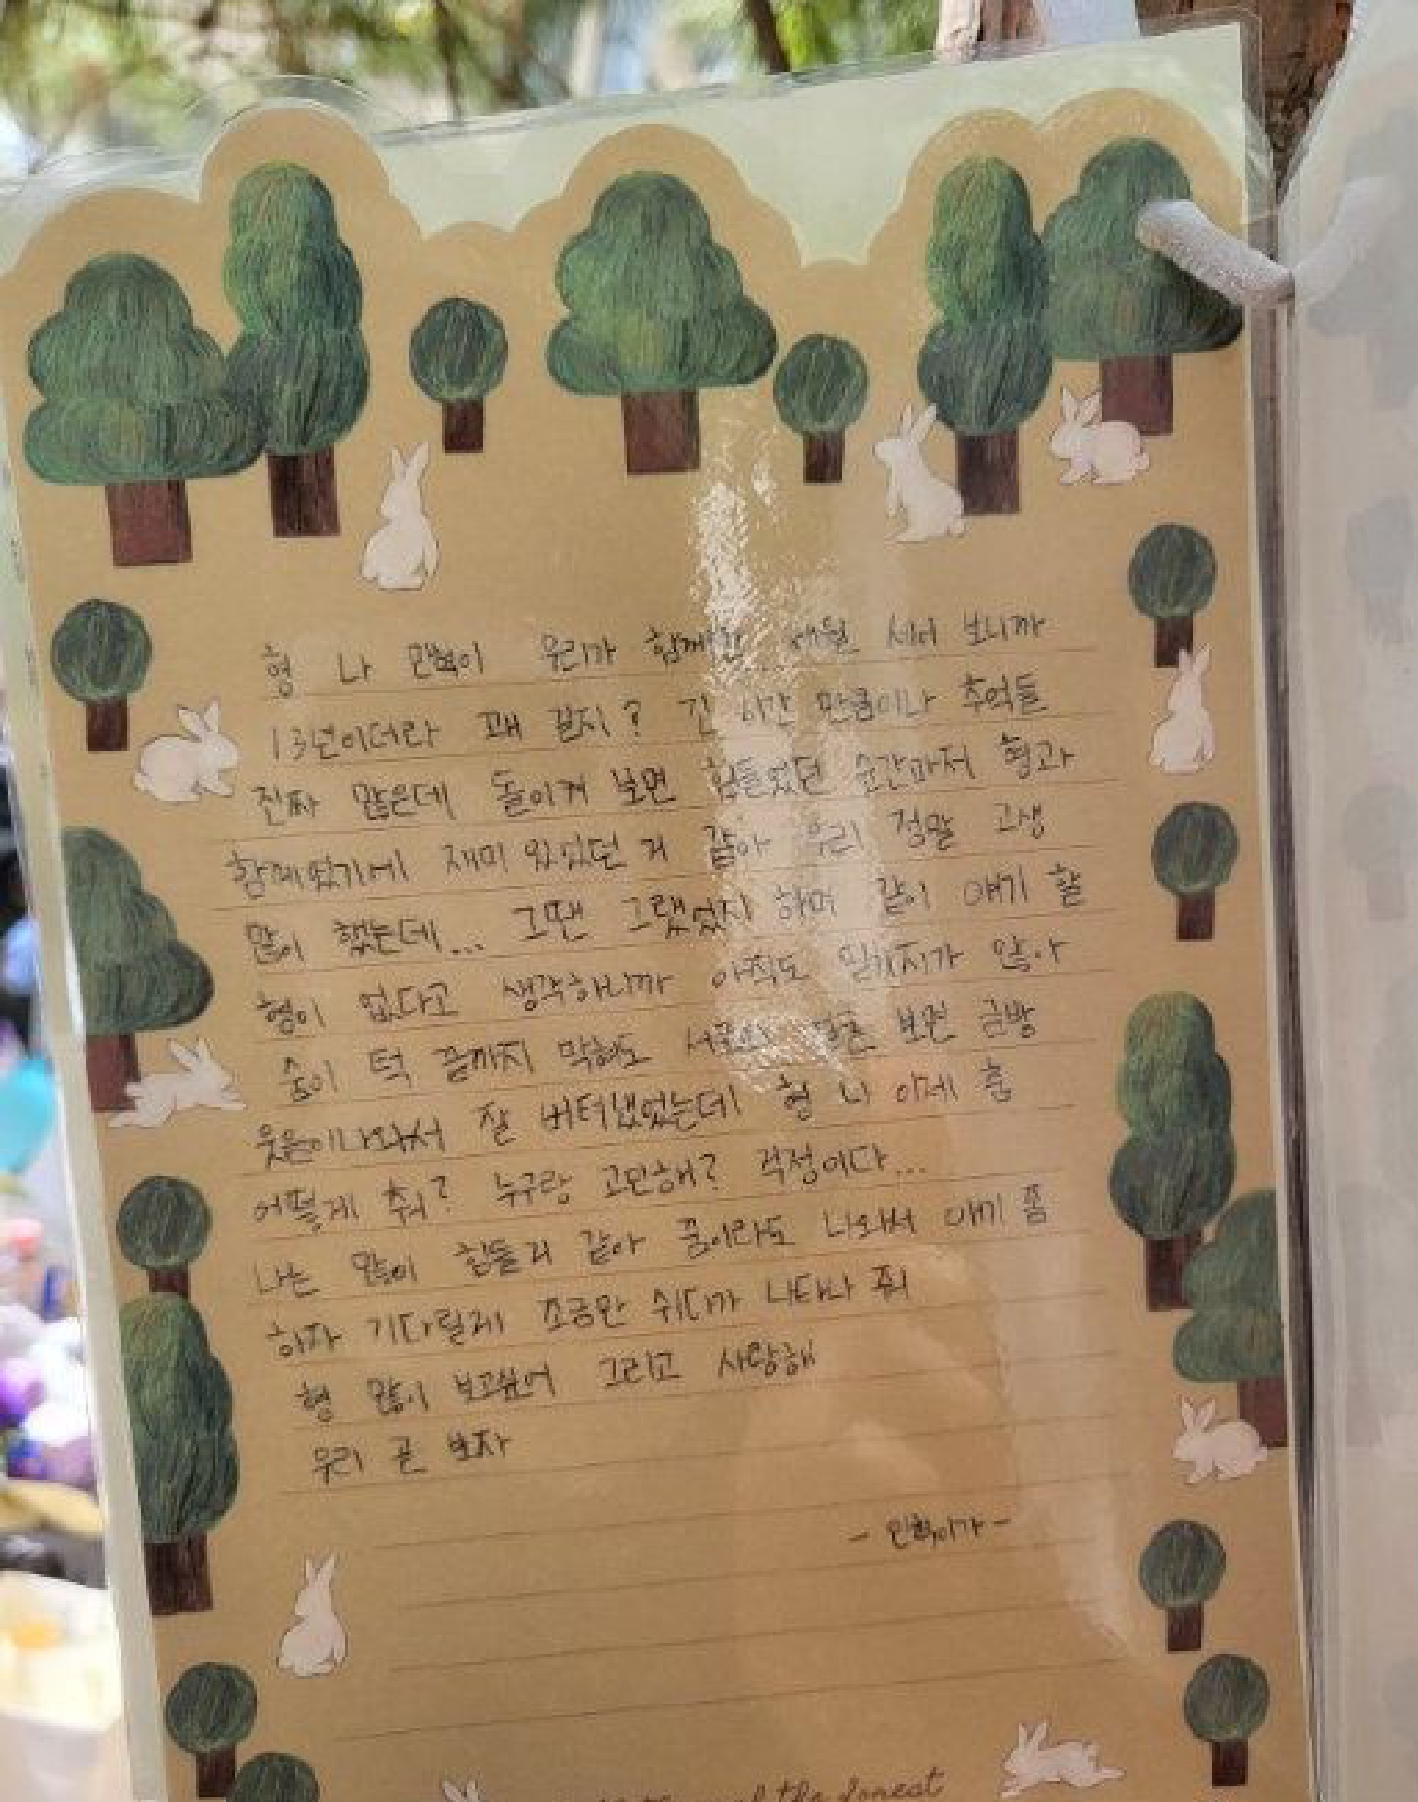 형 나 민혁이 우리가 함께한 세월 세어 보니까
13년이더라 꽤 길지? 긴 시간 만큼이나 추억들
진짜 많은데 돌이켜 보면 힘들었던 순간마저 형과
함께였기에 재미 있었던 거 같아 우리 정말 고생
많이 했는데... 그땐 그랬었지 하며 같이 얘기 할
형이 없다고 생각하니까 아직도 믿겨지가 않아
숨이 턱 끝까지 막혀도 서로의 보면 금방
웃음이나와서 잘 버텨냈었는데 형 나 이제 춤
어떻게 춰? 누구랑 고민해? 걱정이다...
나는 많이 힘들거 같아 꿈이라도 나와서 얘기 좀
하자 기다릴게 조금만 쉬다가 나타나 줘
형 많이 보고싶어 그리고 사랑해
우리 곧 보자
- 민혁이가 -
the forest